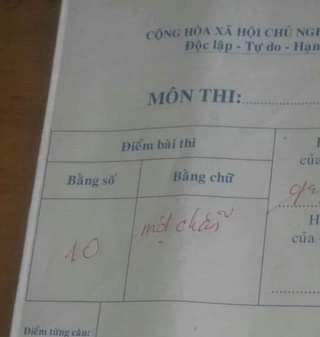 CỘNG HÒA XÃ HỘI CHỦ NGH
Độc lập - Tự do - Hạn
MÔN THI:
Điểm bài thi
Bằng số
Bằng chữ
củ
10
một chẵn
H
của
Điểm từng câu: